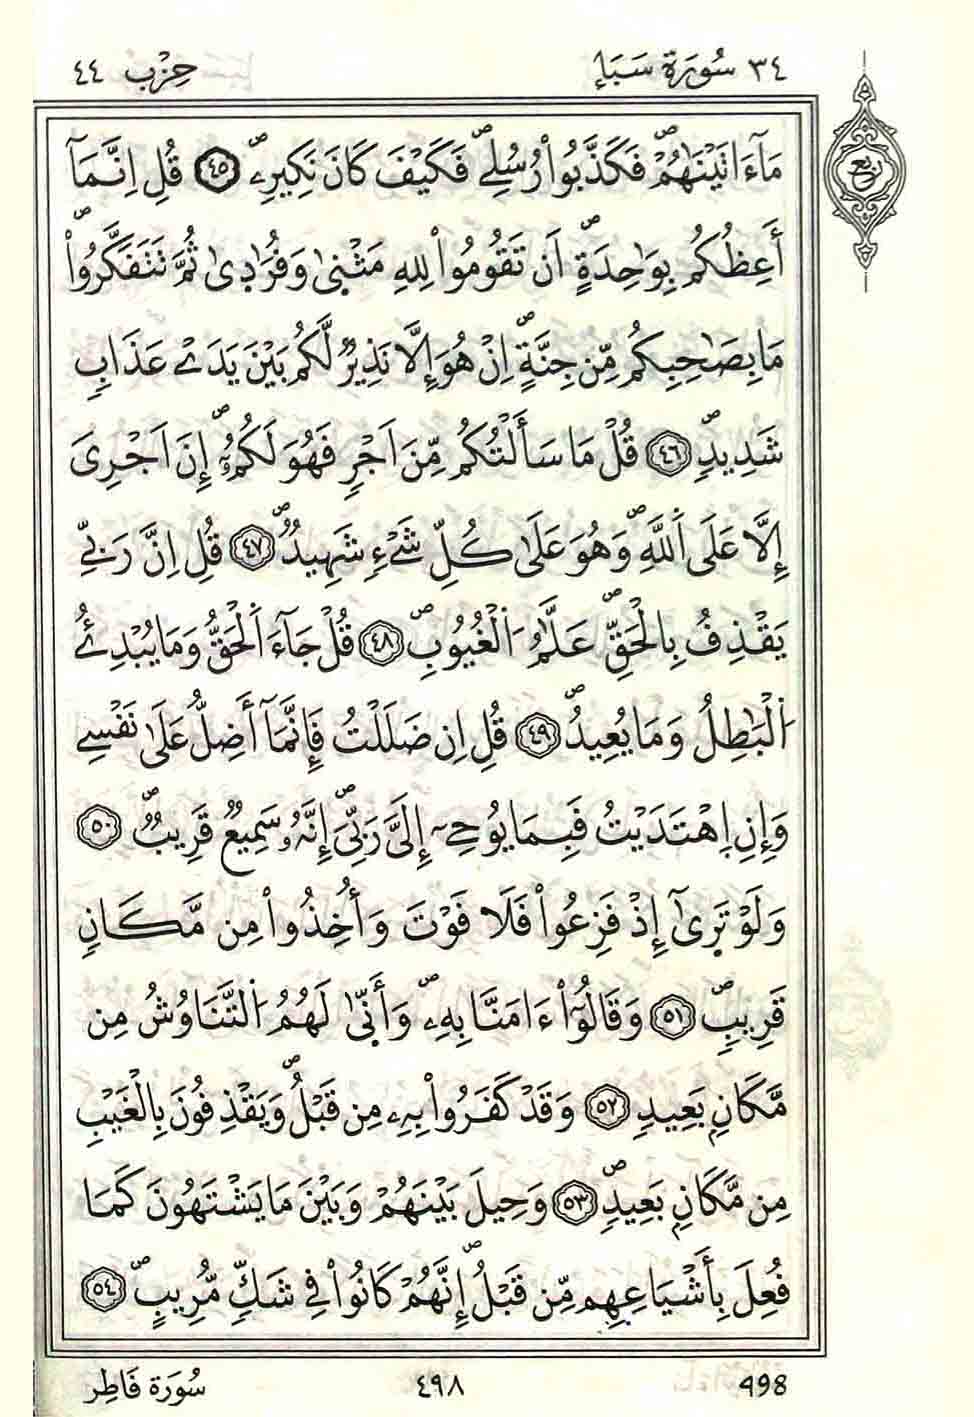 ٣٤ سُورَة سَبَإ
حِزْب ٤٤
ربع
مَآ ءَاتَيْنَٰهُمْۖ فَكَذَّبُواْ رُسُلِےۖ فَكَيْفَ كَانَ نَكِيرِۦۖ ٤٥ قُلِ اِنَّمَآ
أَعِظُكُم بِوَٰحِدَةٍۖ اَن تَقُومُواْ لِلهِ مَثْنۭيٰ وَفُرَٰد۪يٰ ثُمَّ تَتَفَكَّرُواْۖ
مَا بِصَٰحِبِكُم مِّن جِنَّةٍۖ اِنْ هُوَ إِلَّا نَذِيرٞ لَّكُم بَيْنَ يَدَےْ عَذَابٖ
شَدِيدٖۖ ٤٦ قُلْ مَا سَأَلْتُكُم مِّنَ اَجْرٖ فَهُوَ لَكُمُۥٓۖ إِنَ اَجْرِيَ
إِلَّا عَلَي اَ۬للَّهِۖ وَهُوَ عَلَىٰ كُلِّ شَےْءٖ شَهِيدٞۖ ٤٧ قُلِ اِنَّ رَبِّے
يَقْذِفُ بِالْحَقِّۖ عَلَّٰمُ اُ۬لْغُيُوبِۖ ٤٨ قُلْ جَآءَ اَ۬لْحَقُّ وَمَا يُبْدِئُ
اُ۬لْبَٰطِلُ وَمَا يُعِيدُۖ ٤٩ قُلِ اِن ضَلَلْتُ فَإِنَّمَآ أَضِلُّ عَلَىٰ نَفْسِے
وَإِنِ اِ۪هْتَدَيْتُ فَبِمَا يُوحِےٓ إِلَيَّ رَبِّيَۖ إِنَّهُۥ سَمِيعٞ قَرِيبٞۖ ٥٠
وَلَوْ تَر۪يٰٓ إِذْ فَزِعُواْ فَلَا فَوْتَ وَأُخِذُواْ مِن مَّكَانٖ
قَرِيبٖۖ ٥١ وَقَالُوٓاْ ءَامَنَّا بِهِۦۖ وَأَنّ۪يٰ لَهُمُ اُ۬لتَّنَاوُشُ مِن
مَّكَانِۢ بَعِيدٖ ٥٢ وَقَدْ كَفَرُواْ بِهِۦ مِن قَبْلُۖ وَيَقْذِفُونَ بِالْغَيْبِ
مِن مَّكَانِۢ بَعِيدٖۖ ٥٣ وَحِيلَ بَيْنَهُمْ وَبَيْنَ مَا يَشْتَهُونَ كَمَا
فُعِلَ بِأَشْيَاعِهِم مِّن قَبْلُۖ إِنَّهُمْ كَانُواْ فِے شَكّٖ مُّرِيبٖۖ ٥٤
498
٤٩٨
سُورَة فَاطِر